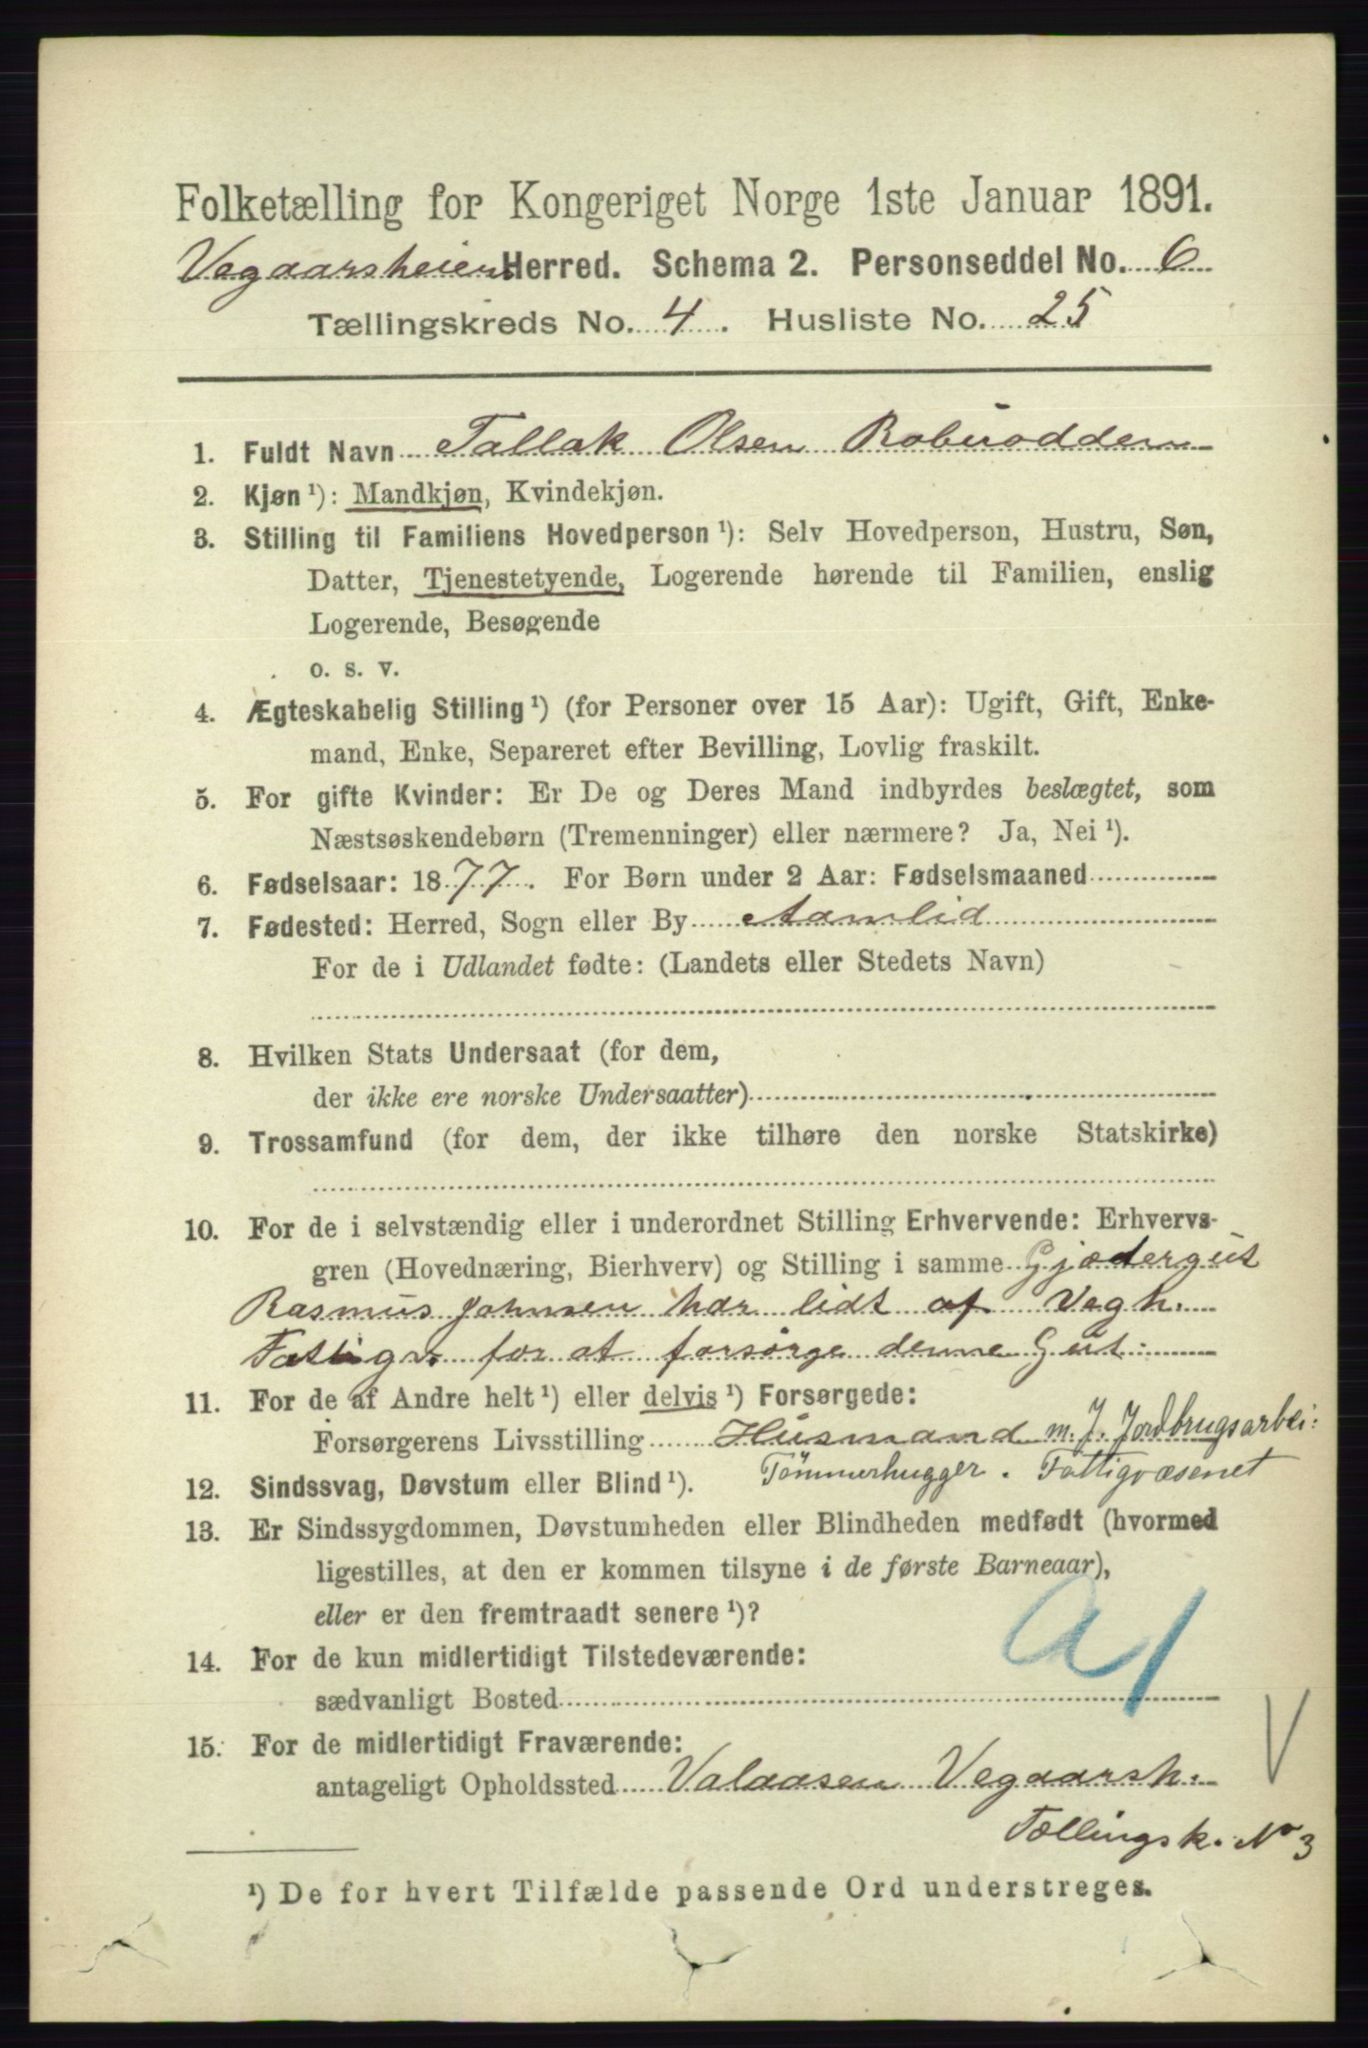 Folketælling for Kongeriget Norge 1ste Januar 1891.
Vegaarsheiens Herred. Schema 2. Personseddel No. 6
Tællingskreds No. 4. Husliste No. 25
1. Fuldt Navn Tallak Olsen Roberodden
2. Kjøn ¹): Mandkjøn, Kvindekjøn.
3. Stilling til Familiens Hovedperson ¹): Selv Hovedperson, Hustru, Søn,
Datter, Tjenestetyende, Logerende hørende til Familien, enslig
Logerende, Besøgende
o. s. v.
4. Ægteskabelig Stilling ¹) (for Personer over 15 Aar): Ugift, Gift, Enke-
mand, Enke, Separeret efter Bevilling, Lovlig fraskilt.
5. For gifte Kvinder: Er De og Deres Mand indbyrdes beslægtet, som
Næstsøskendebørn (Tremenninger) eller nærmere? Ja, Nei ¹).
6. Fødselsaar: 1877. For Børn under 2 Aar: Fødselsmaaned
7. Fødested: Herred, Sogn eller By Aamlid
For de i Udlandet fødte: (Landets eller Stedets Navn)
8. Hvilken Stats Undersaat (for dem,
der ikke ere norske Undersaatter)
9. Trossamfund (for dem, der ikke tilhøre den norske Statskirke)
10. For de i selvstændig eller i underordnet Stilling Erhvervende: Erhvervs-
gren (Hovednæring, Bierhverv) og Stilling i samme Gjædergut
Rasmus Johnsen har lidt af Vegh.
Fattigv. for at forsørge denne Gut.
11. For de af Andre helt ¹) eller delvis ¹) Forsørgede:
Forsørgerens Livsstilling Husmand m. J. Jordbrugsarbei:
Tømmerhugger. Fattigvæsenet
12. Sindssvag, Døvstum eller Blind ¹).
13. Er Sindssygdommen, Døvstumheden eller Blindheden medfødt (hvormed
ligestilles, at den er kommen tilsyne i de første Barneaar),
eller er den fremtraadt senere ¹)?
a1
14. For de kun midlertidigt Tilstedeværende:
sædvanligt Bosted
V
15. For de midlertidigt Fraværende:
antageligt Opholdssted Valaasen Vegaarsh.
Tællingsk. No 3
¹) De for hvert Tilfælde passende Ord understreges.